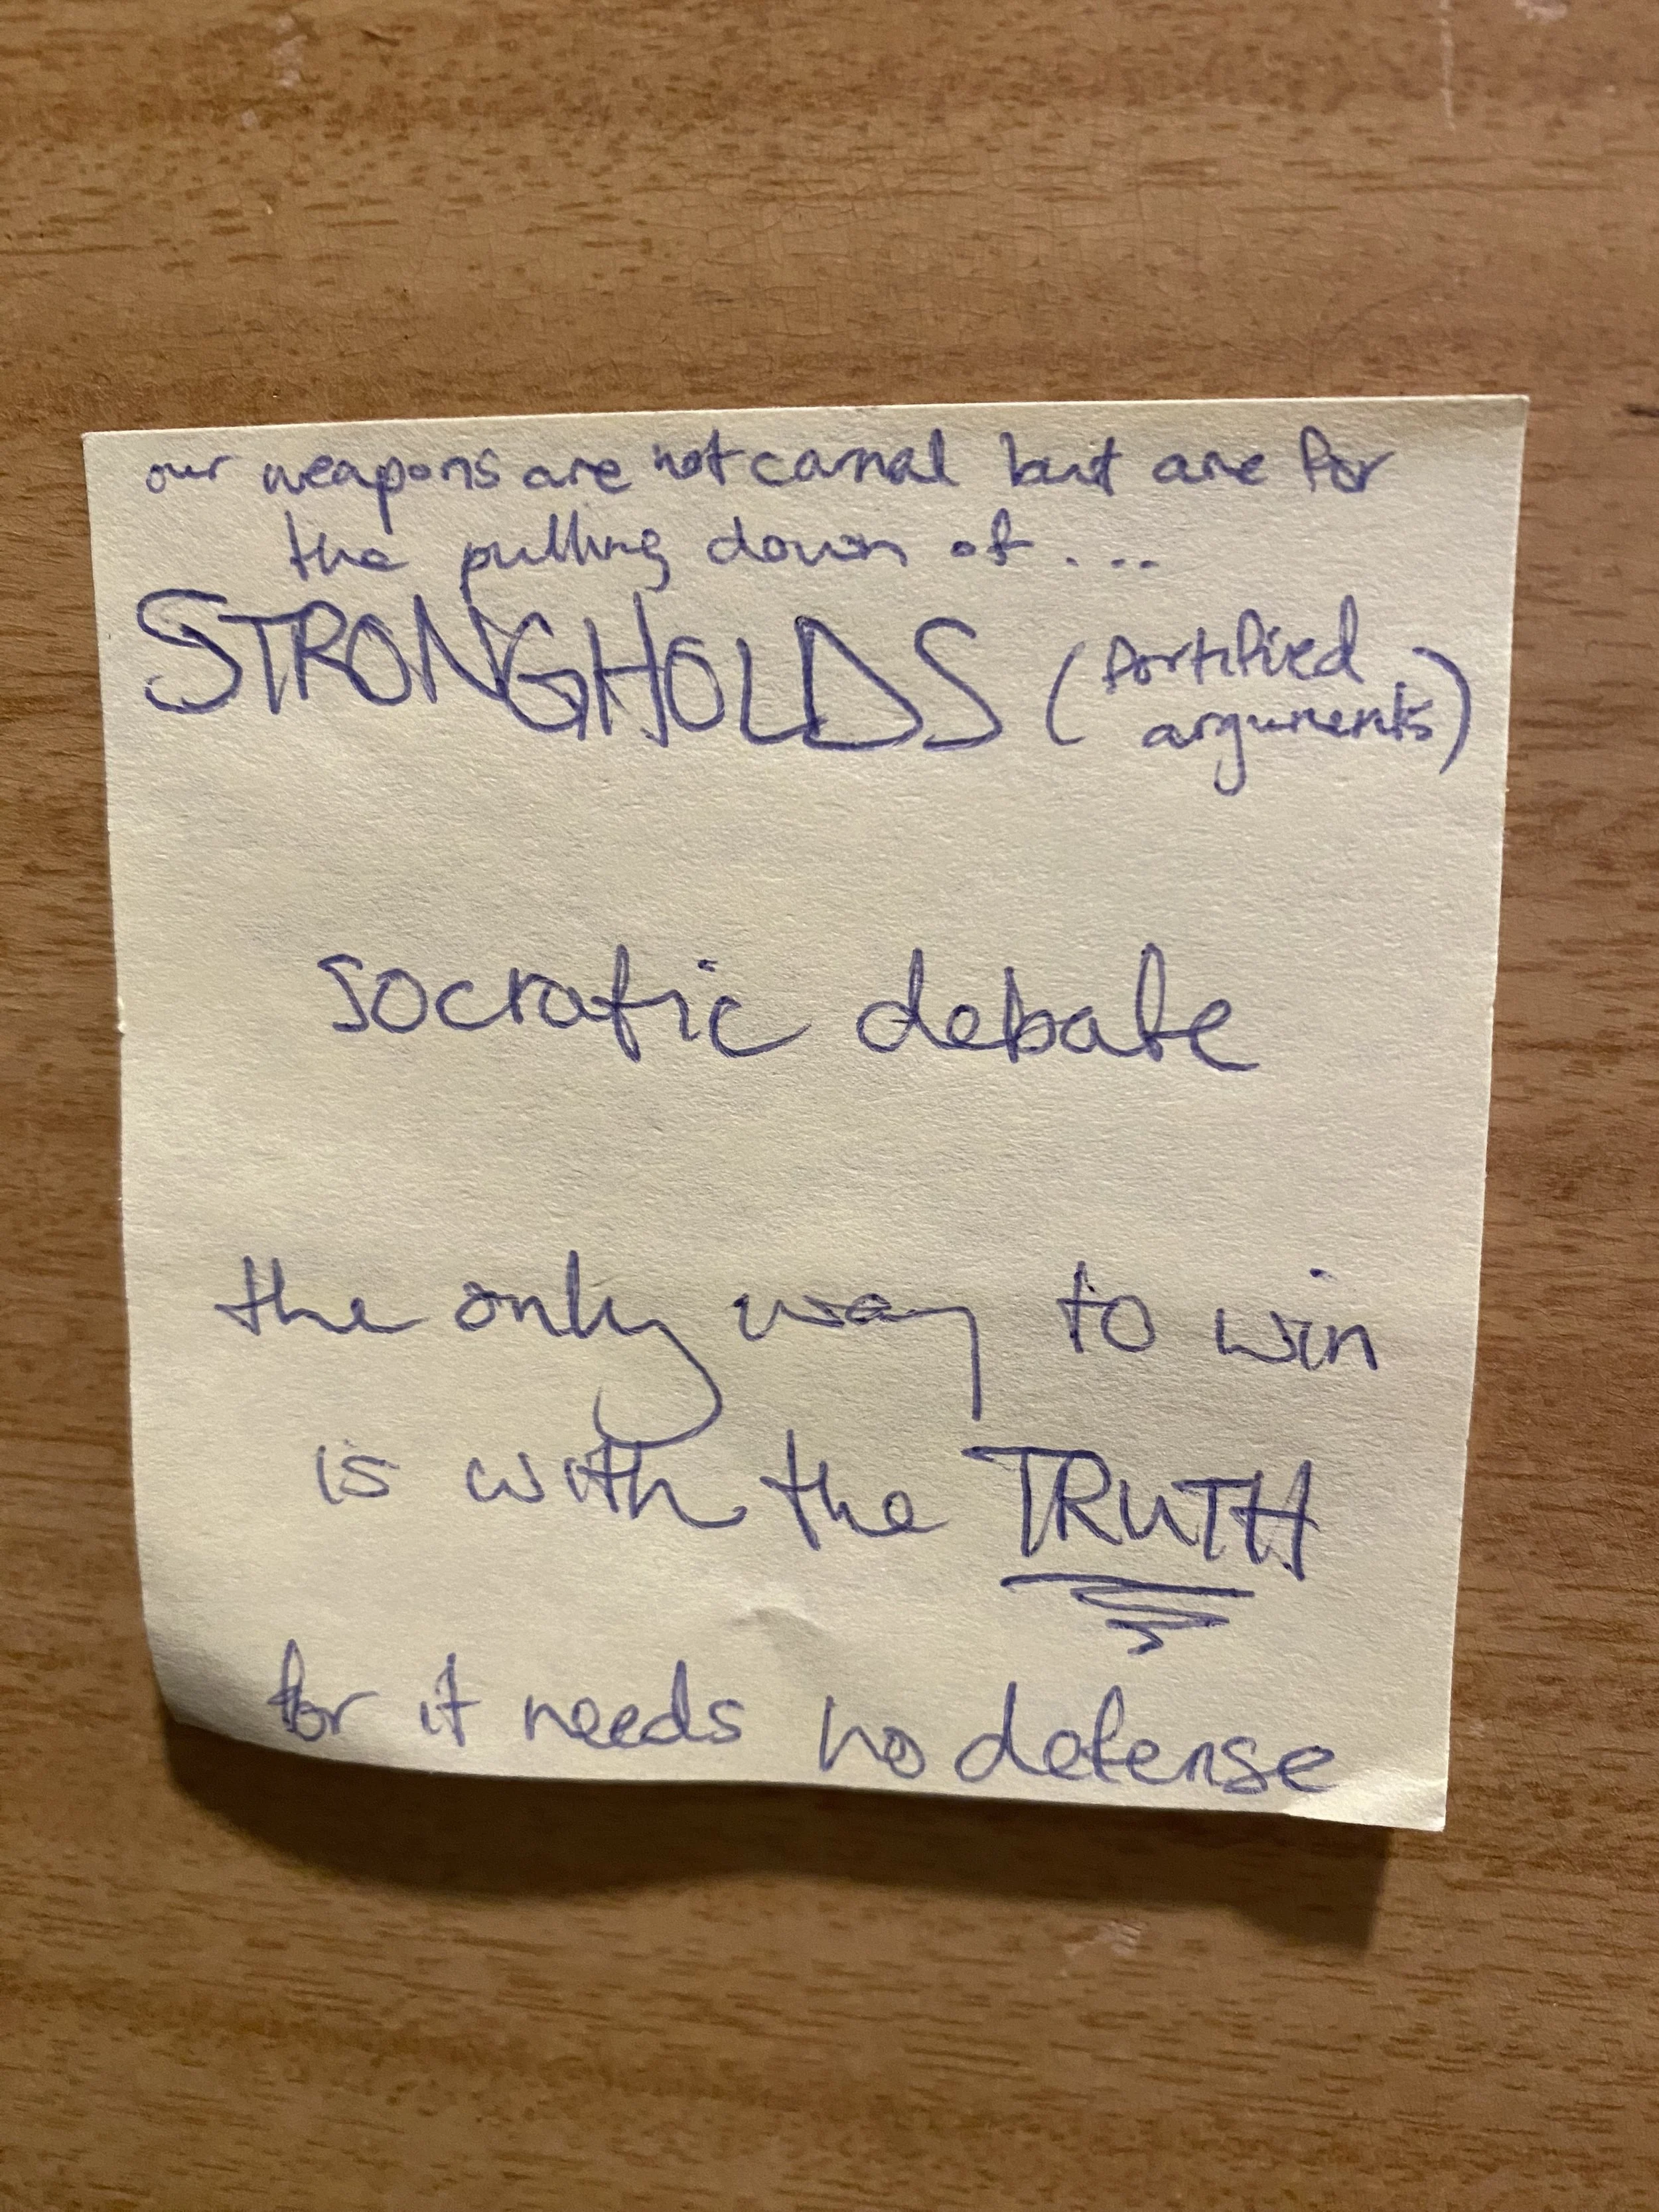 our weapons are not carnal but are for
the pulling down of....
STRONGHOLDS (fortified
arguments)
socratic debate
the only way to win
is with the TRUTH
for it needs no defense